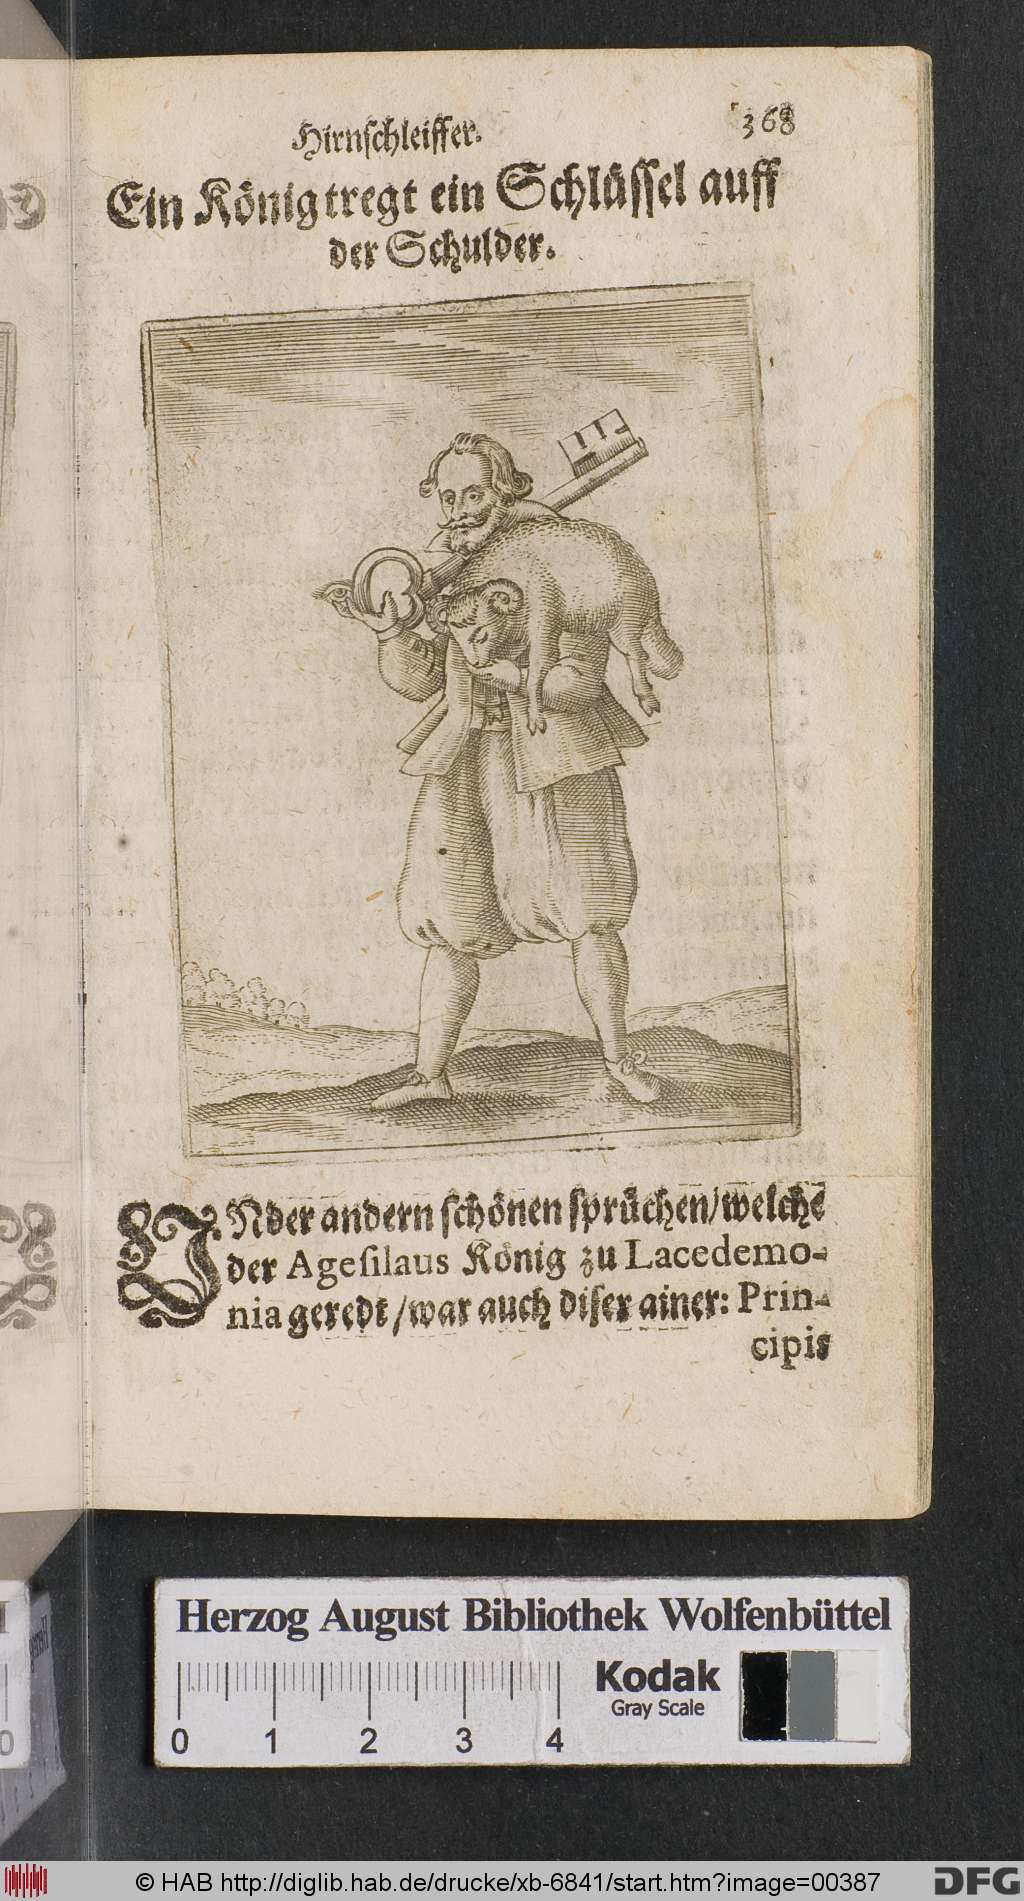 Hirnschleiffer.
368
Ein König tregt ein Schlüssel auff
der Schulder.
INder andern schönen sprüchen/welche
der Agesilaus König zu Lacedemo-
nia geredt/war auch diser ainer: Prin-
cipis
Herzog August Bibliothek Wolfenbüttel
Kodak
Gray Scale
0 1 2 3 4
© HAB http://diglib.hab.de/drucke/xb-6841/start.htm?image=00387
DFG